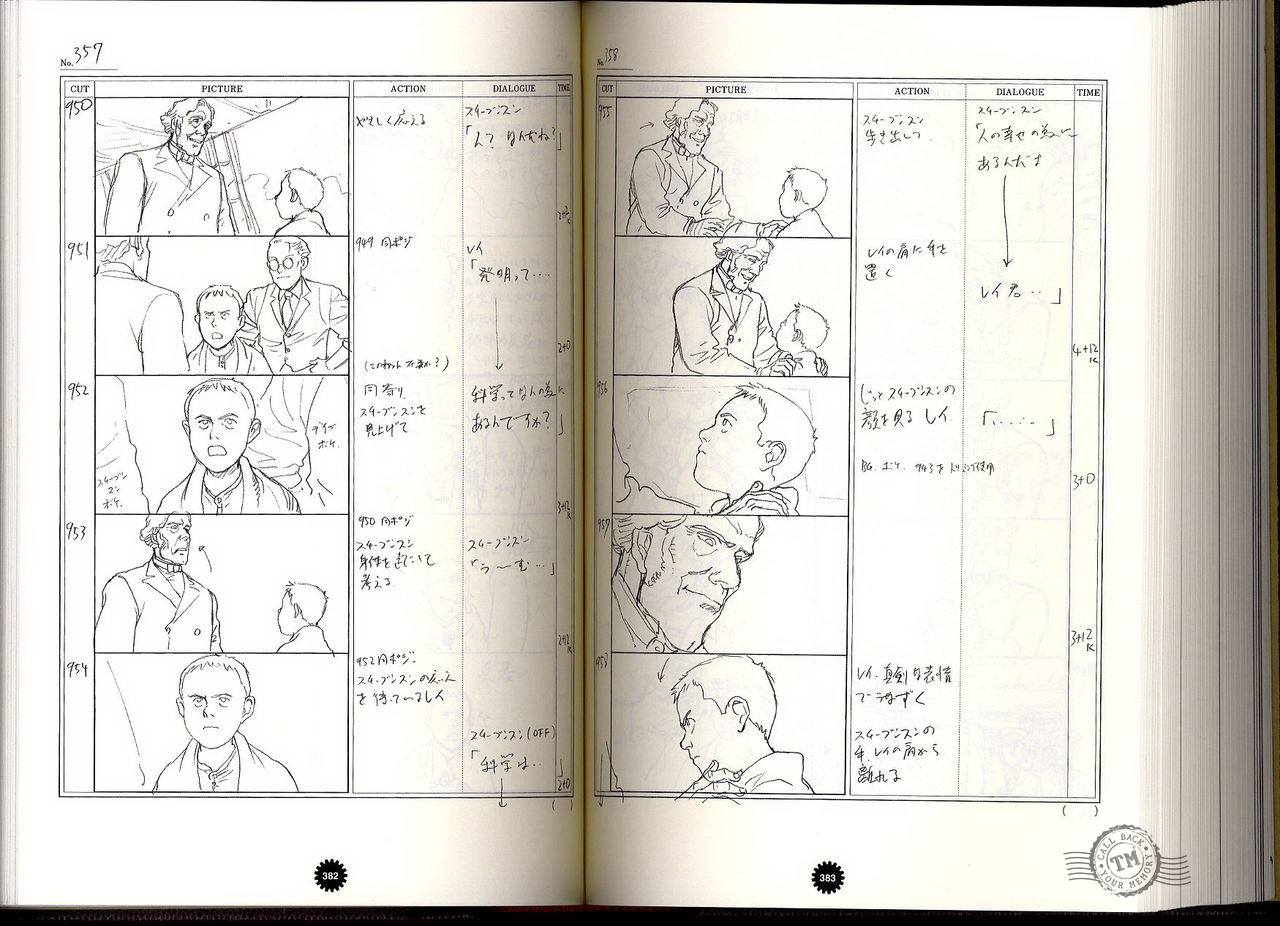 No. 357
CUT PICTURE ACTION DIALOGUE TIME
950
やさしく応える
スチーブンスン
「ん? なんだね?」
951
949 同ポジ
レイ
「発明って‥‥
2+0
952
同寄り
スチーブンスンを
見上げて
科学ってなんの為に
あるんですか?」
スチーブンスンボケ.
デイブボケ.
3+12
K
953
950 同ポジ
スチーブンスン
身体を起こして
考える
スチーブンスン
「う〜む…」
2+12
K
954
952 同ポジ.
スチーブンスンの応えを
待っているレイ
スチーブンスン(OFF)
「科学は‥」
2+0
( )
382
No. 358
CUT PICTURE ACTION DIALOGUE TIME
955
スチーブンスン
歩き出して.
スチーブンスン
「人の幸せの為に
あるんだよ
レイの肩に手を
置く
レイ君‥」
4+12
K
956
じっとスチーブンスンの
顔を見るレイ
「‥‥‥」
BG. ボケ. 943を
3+0
957
3+12
K
958
レイ. 真剣な表情
でうなずく
スチーブンスンの
手. レイの肩から
離れる
( )
383
CALL BACK
TM
YOUR MEMORY